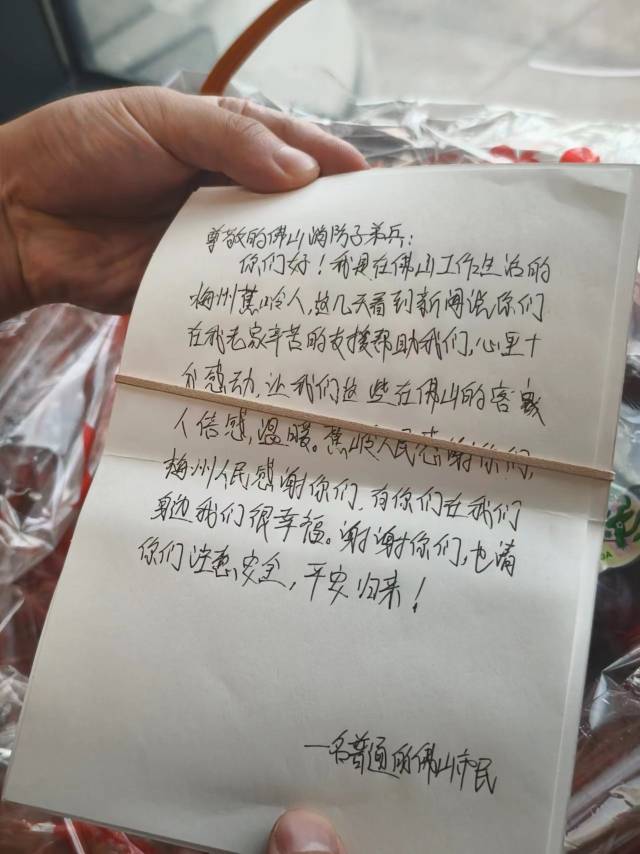 尊敬的佛山消防子弟兵：
你们好！我是在佛山工作生活的
梅州蕉岭人，这几天看到新闻说你们
在我老家辛苦的支援帮助我们，心里十
分感动，让我们这些在佛山的客家
人倍感，温暖。蕉岭人民感谢你们，
梅州人民感谢你们，有你们在我们
身边我们很幸福。谢谢你们，也请
你们注意安全，平安归来！
一名普通的佛山市民